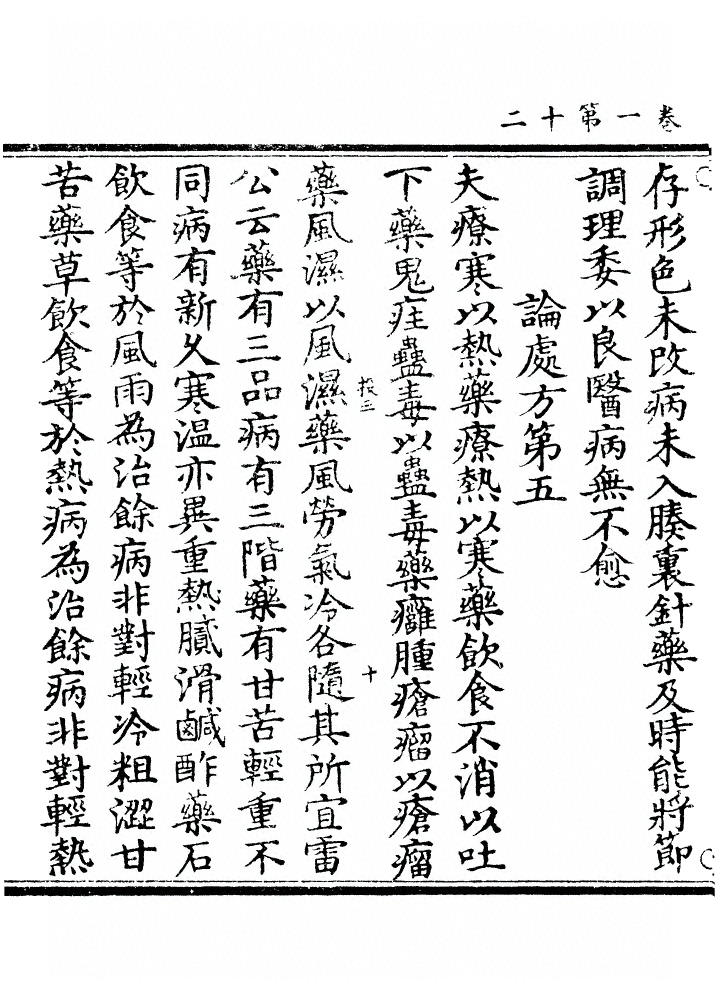 卷一第十二
存形色未改病未入腠裏針藥及時能將節
調理委以良醫病無不愈
論處方第五
夫療寒以熱藥療熱以寒藥飲食不消以吐
下藥鬼疰蠱毒以蠱毒藥癰腫瘡瘤以瘡瘤
藥風濕以風濕藥風勞氣冷各隨其所宜雷
公云藥有三品病有三階藥有甘苦輕重不
同病有新久寒温亦異重熱膩滑鹹酢藥石
飲食等於風雨為治餘病非對輕冷粗澀甘
苦藥草飲食等於熱病為治餘病非對輕熱
十